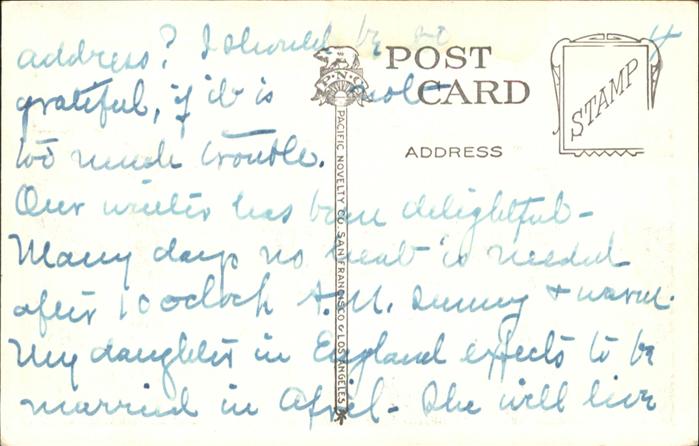 address? I should be so
grateful, if it is not
too much trouble.
Our winter has been delightful -
Many days no heat is needed
after 10 oclock A.M. Sunny & warm.
My daughter in England expects to be
married in April - She will live
4
POST
CARD
ADDRESS
STAMP
P.N.C.
PACIFIC NOVELTY CO. SAN FRANCISCO & LOS ANGELES